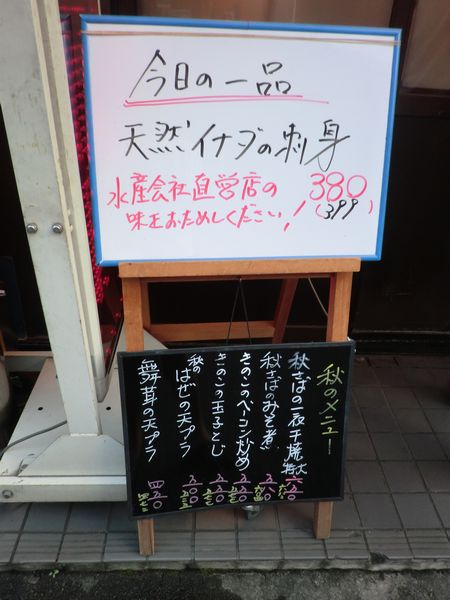 今日の一品
天然イナダの刺身
水産会社直営店の 380
味をおためしください! (399)
秋のメニュー
秋さばの一夜干焼 特大
秋さばのみそ煮
きのこのベーコン炒め
きのこの玉子とじ
秋のはぜの天プラ
舞茸の天プラ